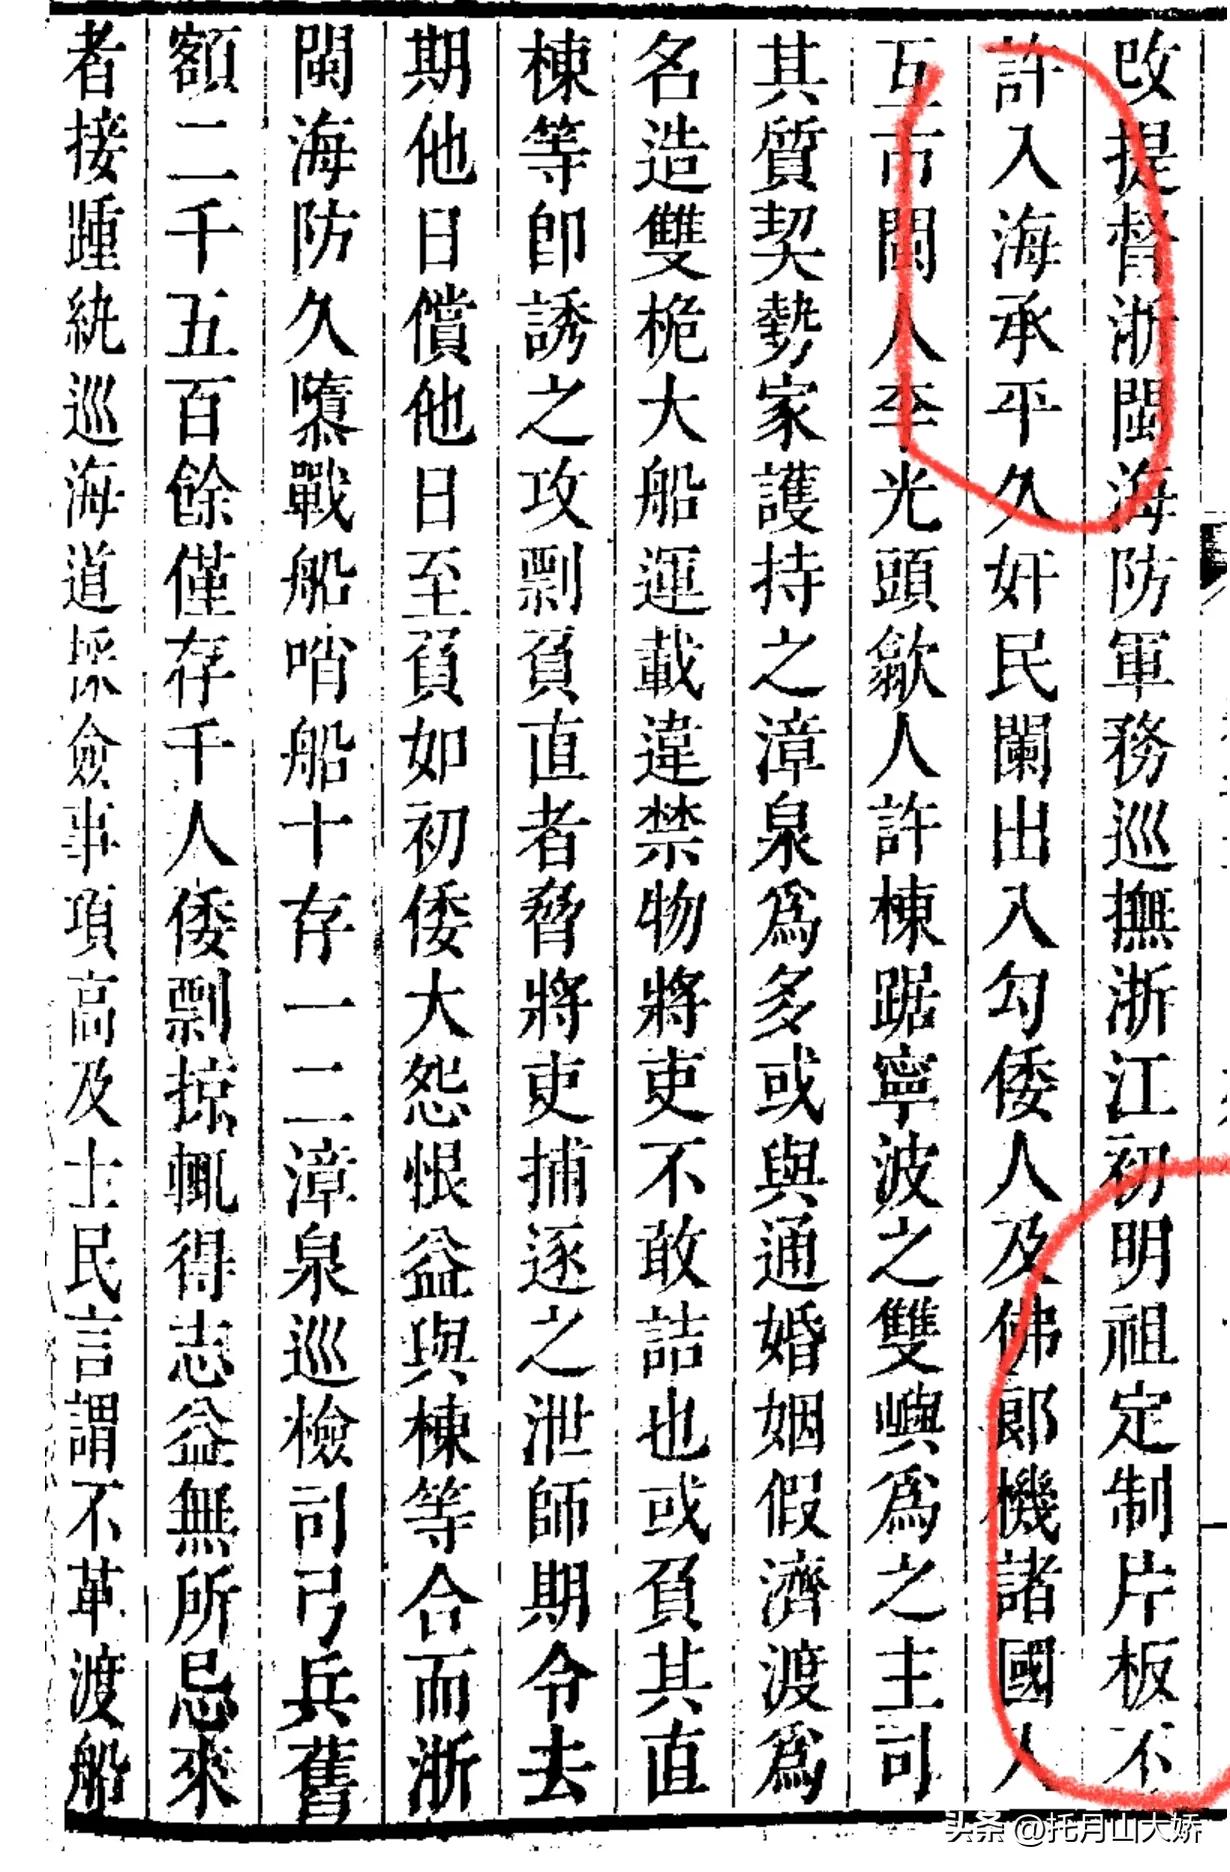 改提督浙閩海防軍務巡撫浙江初明祖定制片板不
許入海承平久奸民闌出入勾倭人及佛郎機諸國人
互市閩人李光頭歙人許棟踞寧波之雙嶼爲之主司
其質契勢家護持之漳泉爲多或與通婚姻假濟渡爲
名造雙桅大船運載違禁物將吏不敢詰也或負其直
棟等卽誘之攻剽負直者脅將吏捕逐之泄師期令去
期他日償他日至負如初倭大怨恨益與棟等合而浙
閩海防久隳戰船哨船十存一二漳泉巡檢司弓兵舊
額二千五百餘僅存千人倭剽掠輒得志益無所忌來
者接踵紈巡海道採僉事項高及士民言謂不革渡船
头条 @托月山大娇